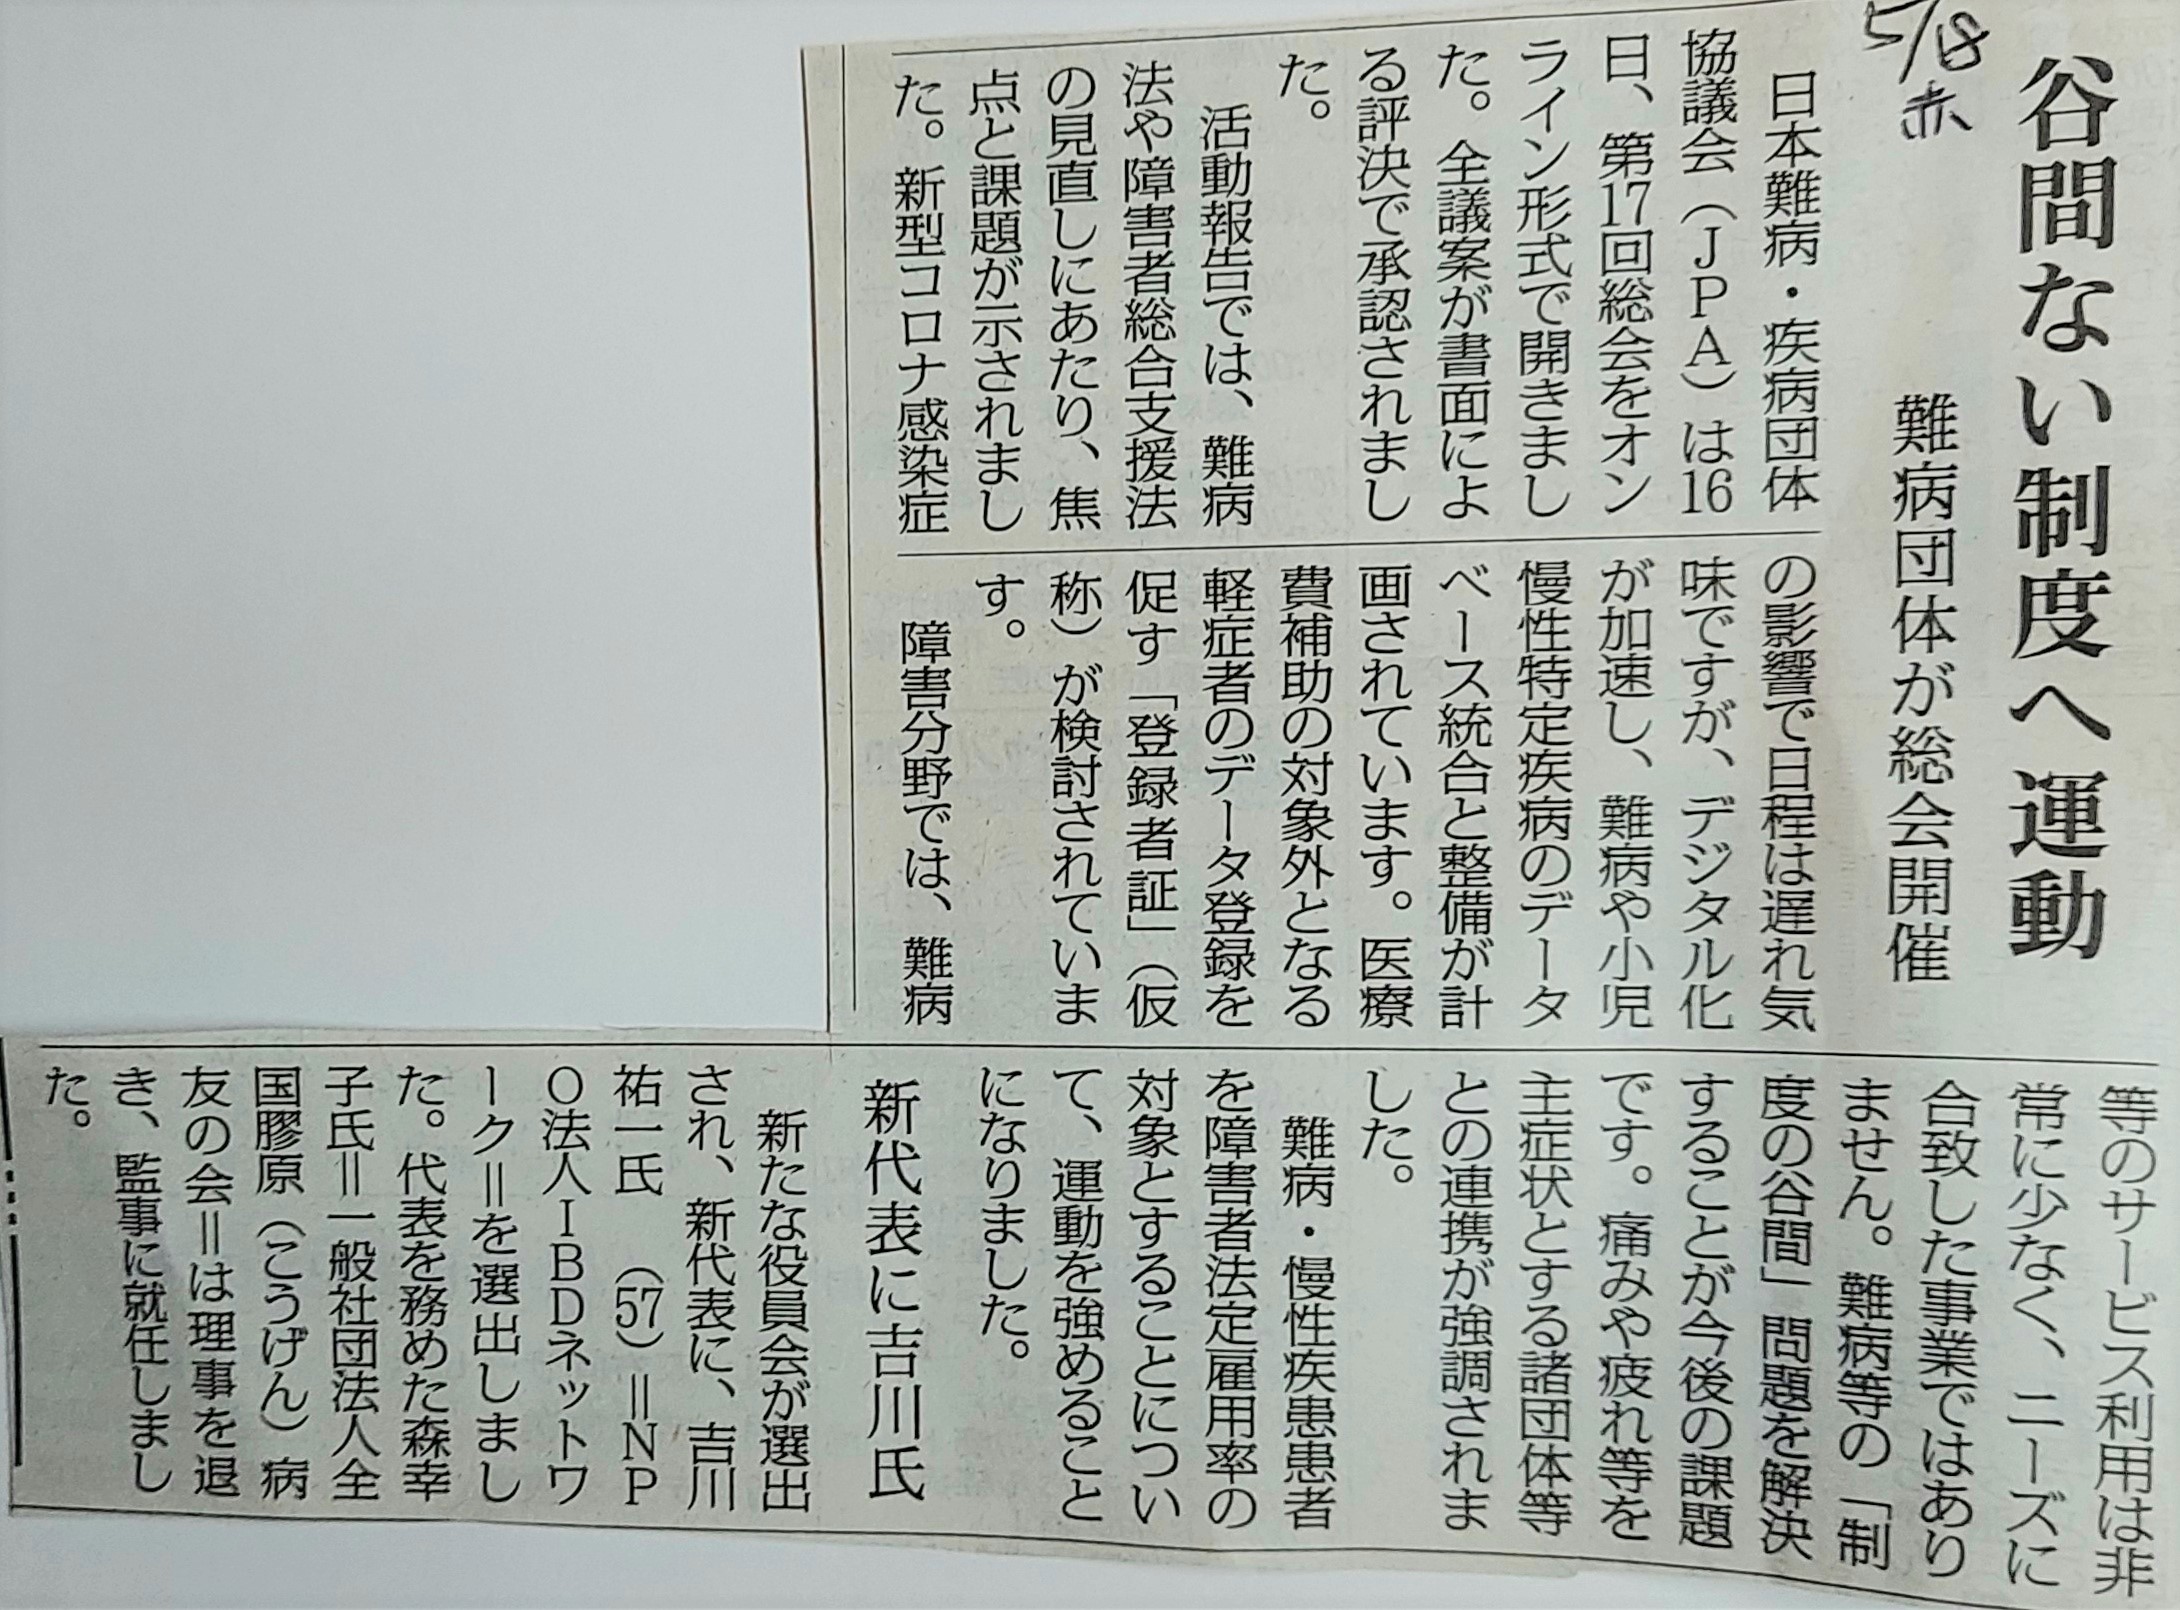 5/18
赤
谷間ない制度へ運動
難病団体が総会開催
日本難病・疾病団体
協議会（ＪＰＡ）は16
日、第17回総会をオン
ライン形式で開きまし
た。全議案が書面によ
る評決で承認されまし
た。
活動報告では、難病
法や障害者総合支援法
の見直しにあたり、焦
点と課題が示されまし
た。新型コロナ感染症
の影響で日程は遅れ気
味ですが、デジタル化
が加速し、難病や小児
慢性特定疾病のデータ
ベース統合と整備が計
画されています。医療
費補助の対象外となる
軽症者のデータ登録を
促す「登録者証」（仮
称）が検討されていま
す。
障害分野では、難病
等のサービス利用は非
常に少なく、ニーズに
合致した事業ではあり
ません。難病等の「制
度の谷間」問題を解決
することが今後の課題
です。痛みや疲れ等を
主症状とする諸団体等
との連携が強調されま
した。
難病・慢性疾患患者
を障害者法定雇用率の
対象とすることについ
て、運動を強めること
になりました。
新代表に吉川氏
新たな役員会が選出
され、新代表に、吉川
祐一氏（57）＝ＮＰ
Ｏ法人ＩＢＤネットワ
ーク＝を選出しまし
た。代表を務めた森幸
子氏＝一般社団法人全
国膠原（こうげん）病
友の会＝は理事を退
き、監事に就任しまし
た。